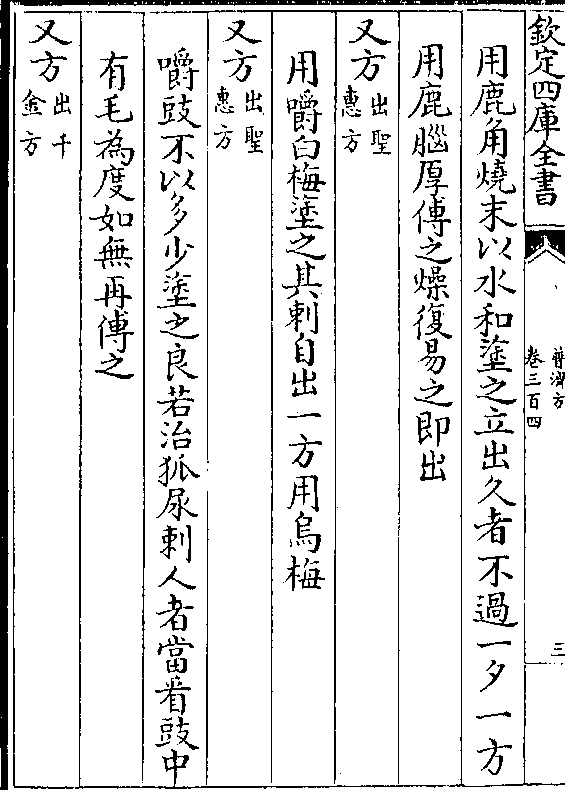 欽定四庫全書
普濟方
卷三百四
三
用鹿角燒末以水和塗之立出久者不過一夕一方
用鹿腦厚傅之燥復易之即出
又方出聖惠方
用嚼白梅塗之其刺自出一方用烏梅
又方出聖惠方
嚼豉不以多少塗之良若治狐尿刺人者當看豉中
有毛為度如無再傅之
又方出千金方